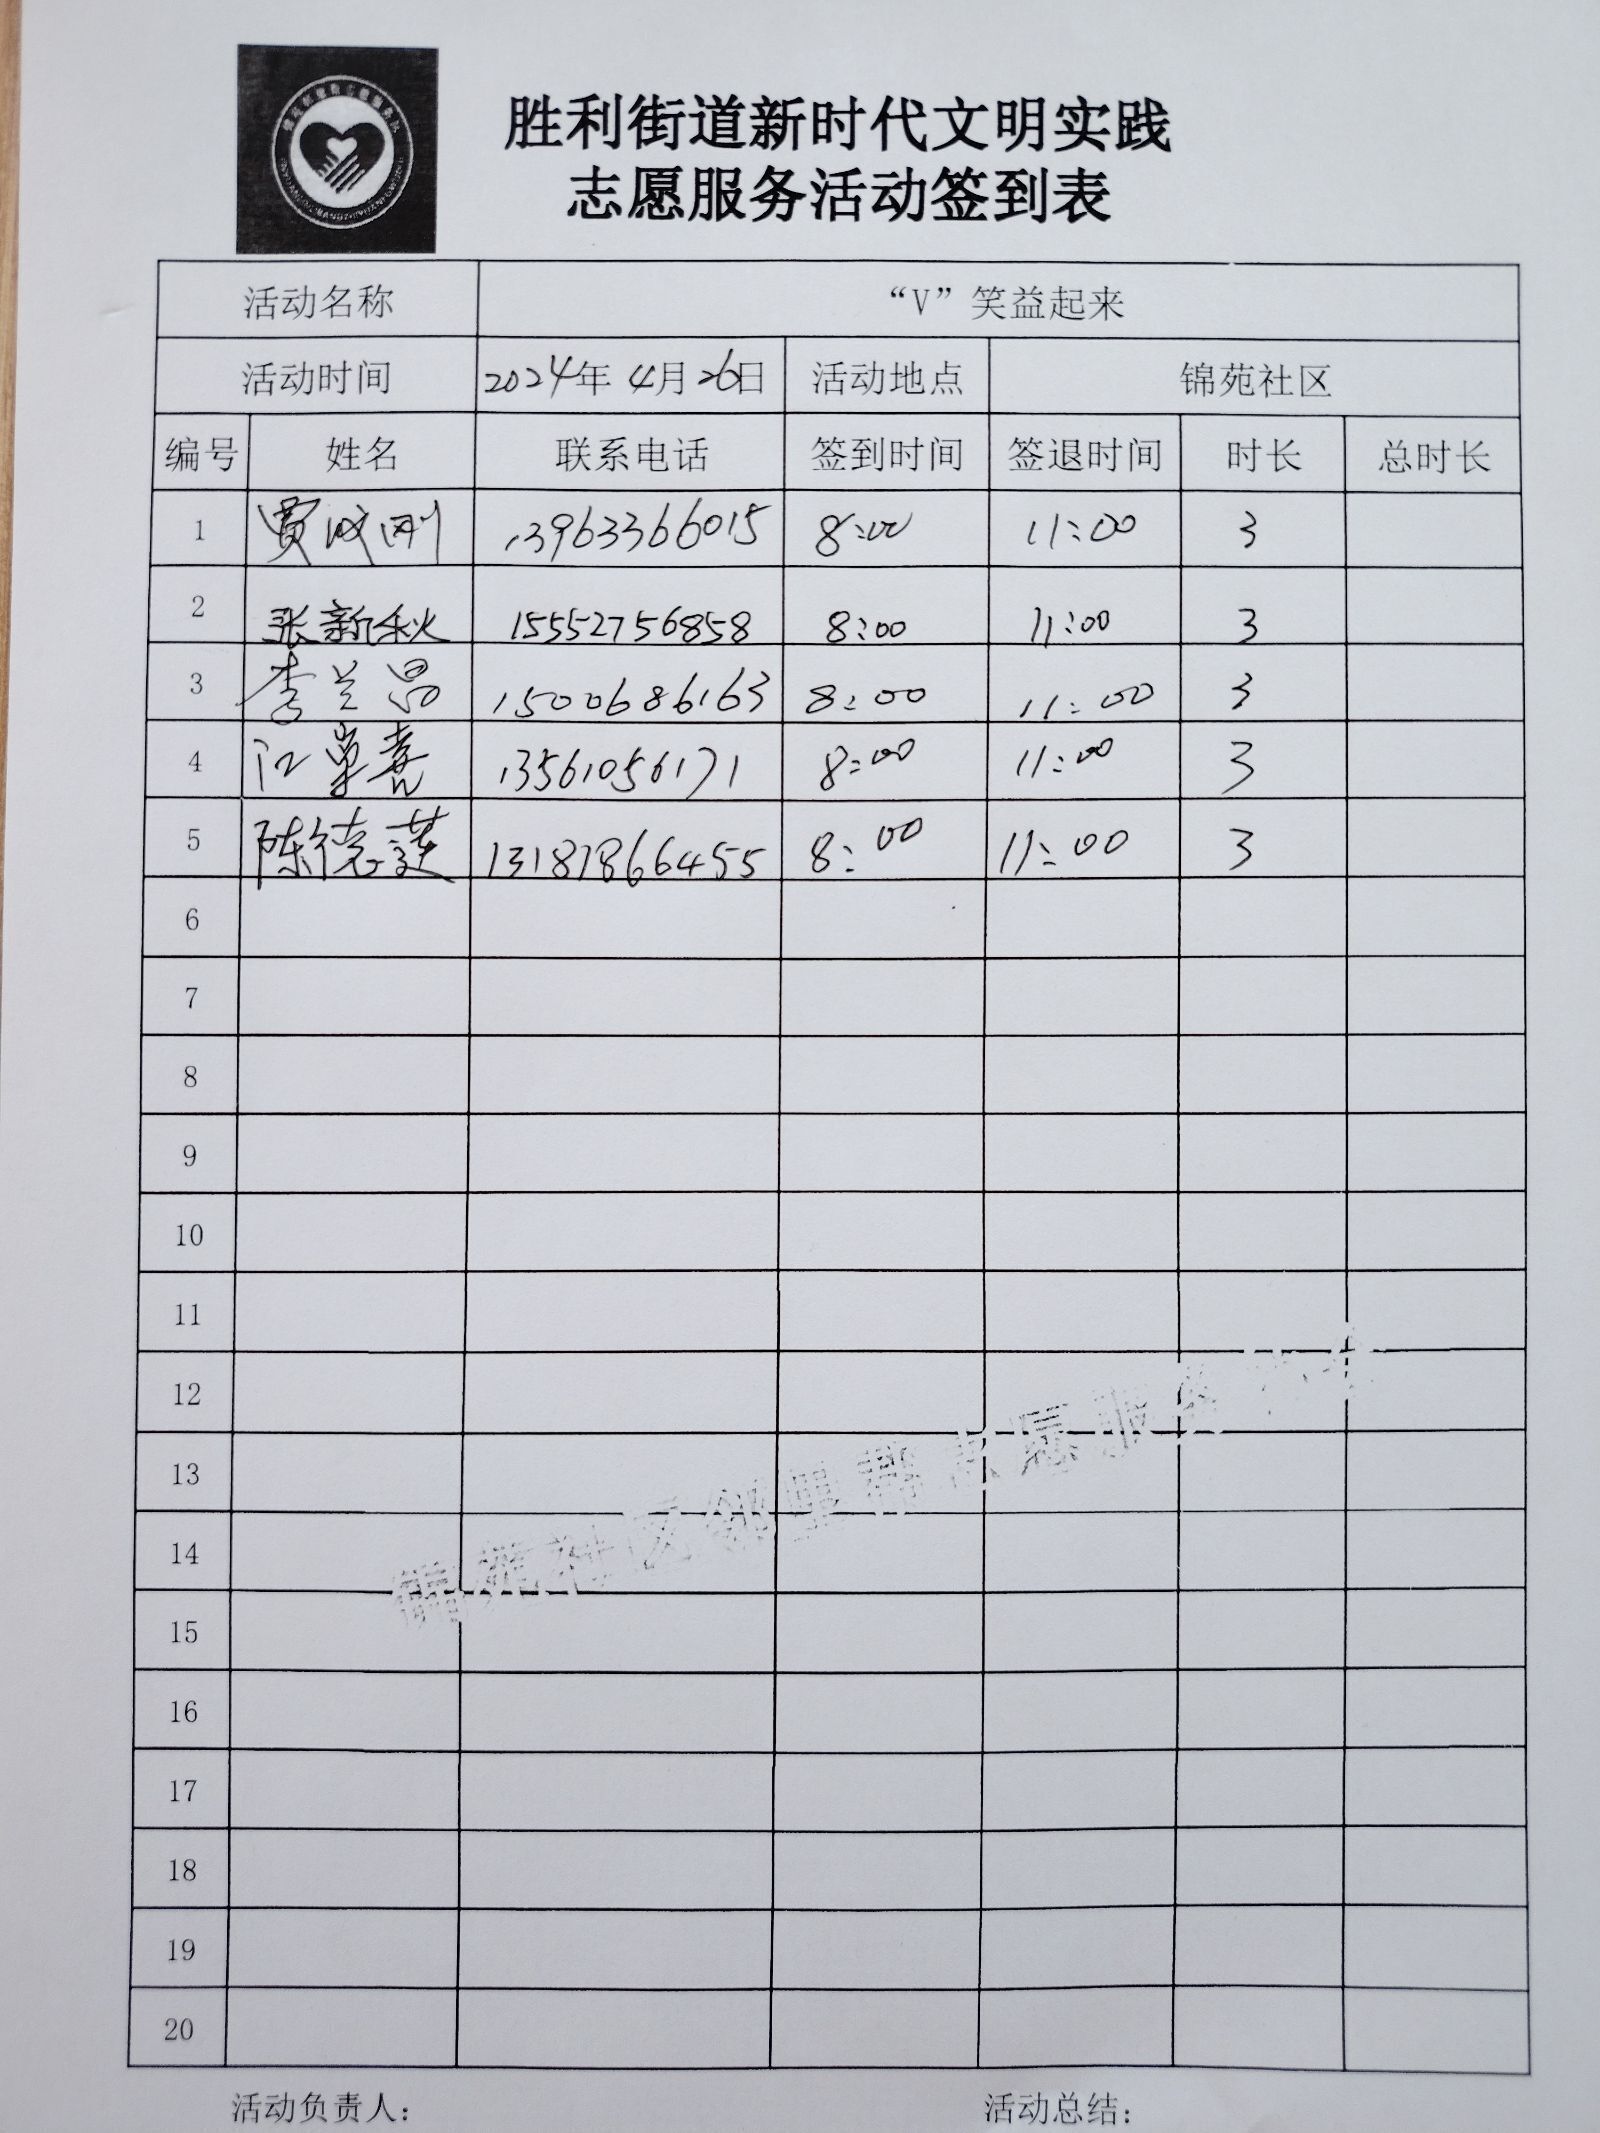 胜利街道新时代文明实践
志愿服务活动签到表
活动名称 “V”笑益起来
活动时间 2024年 4月 26日 活动地点 锦苑社区
编号 姓名 联系电话 签到时间 签退时间 时长 总时长
1 贾成刚 13963366015 8:00 11:00 3
2 张新秋 15552756858 8:00 11:00 3
3 李兰昂 15006686163 8:00 11:00 3
4 江 13561056171 8:00 11:00 3
5 陈德 13181866455 8:00 11:00 3
6
7
8
9
10
11
12
13
14
15
16
17
18
19
20
锦苑社区邻里帮志愿服务
活动负责人： 活动总结：